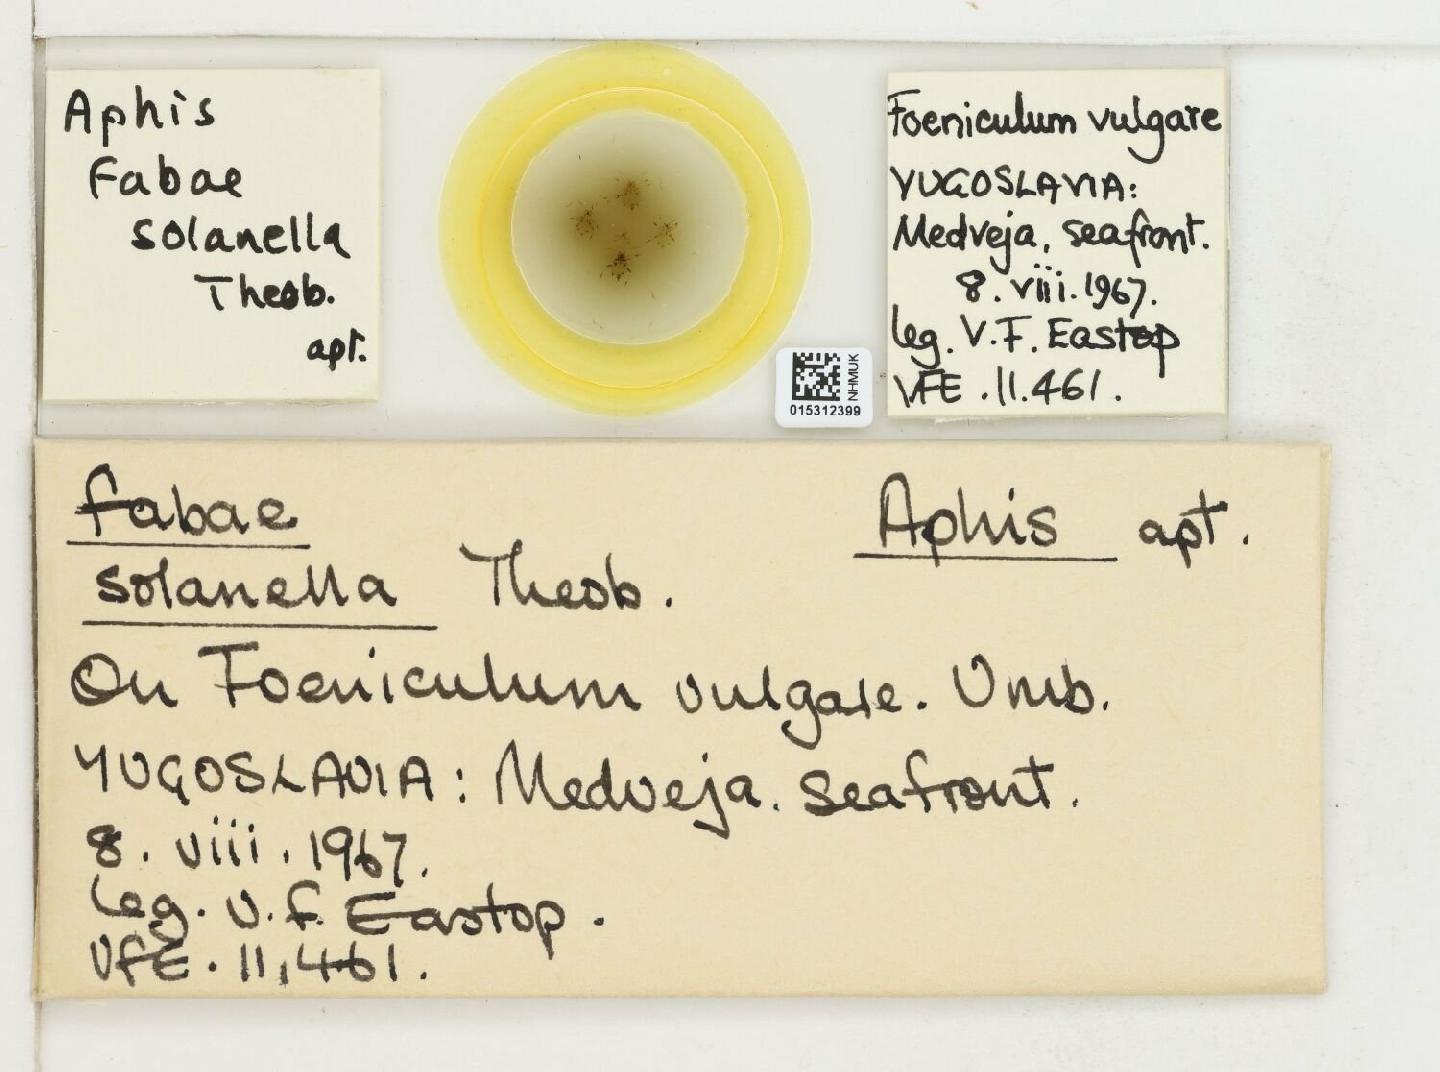 Aphis
fabae
solanella
Theob.
apt.
Foeniculum vulgare
YUGOSLAVIA:
Medveja, seafront.
8. viii. 1967.
leg. V. F. Eastop
VFE . 11.461.
NHMUK
015312399
fabae
Aphis apt.
solanella Theob.
On Foeniculum vulgare. Umb.
YUGOSLAVIA: Medveja. seafront.
8. viii. 1967.
leg. V. F. Eastop.
VFE. 11,461.